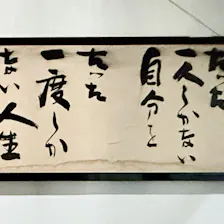 たった
一人しかない
自分を
たった
一度しか
ない人生